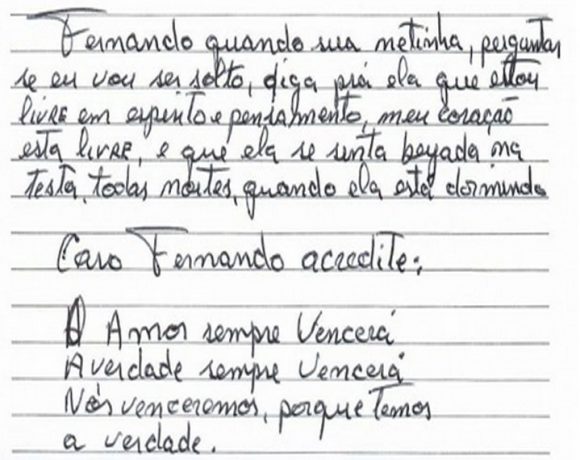 Fernando quando sua netinha, perguntar
se eu vou ser solto, diga prá ela que estou
livre em espirito e pensamento, meu coração
esta livre, e que ela se sinta beijada na
testa, todas noites, quando ela está dormindo
Caro Fernando acredite:
O Amor sempre Vencerá
A verdade sempre Vencerá
Nós venceremos, porque Temos
a verdade.